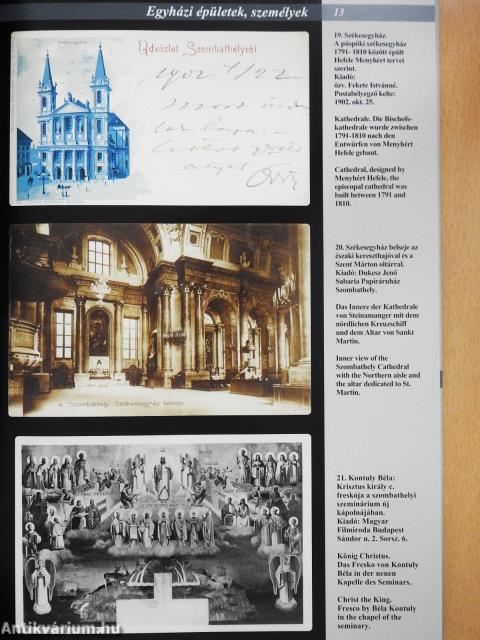 Egyházi épületek, személyek
13
Székesegyház.
Üdvözlet Szombathelyről.
1902 X/22.
19. Székesegyház.
A püspöki székesegyház
1791- 1810 között épült
Hefele Menyhért tervei
szerint.
Kiadó:
özv. Fekete Istvánné.
Postabélyegző kelte:
1902. okt. 25.
Kathedrale. Die Bischofs-
kathedrale wurde zwischen
1791-1810 nach den
Entwürfen von Menyhért
Hefele gebaut.
Cathedral, designed by
Menyhért Hefele, the
episcopal cathedral was
built between 1791 and
1810.
Szombathely. Székesegyház belseje
20. Székesegyház belseje az
északi kereszthajóval és a
Szent Márton oltárral.
Kiadó: Dukesz Jenő
Sabaria Papíráruház
Szombathely.
Das Innere der Kathedrale
von Steinamanger mit dem
nördlichen Kreuzschiff
und dem Altar von Sankt
Martin.
Inner view of the
Szombathely Cathedral
with the Northern aisle and
the altar dedicated to St.
Martin.
21. Kontuly Béla:
Krisztus király c.
freskója a szombathelyi
szeminárium új
kápolnájában.
Kiadó: Magyar
Filmiroda Budapest
Sándor u. 2. Sorsz. 6.
König Christus.
Das Fresko von Kontuly
Béla in der neuen
Kapelle des Seminars.
Christ the King.
Fresco by Béla Kontuly
in the chapel of the
seminary.
Antikvárium.hu